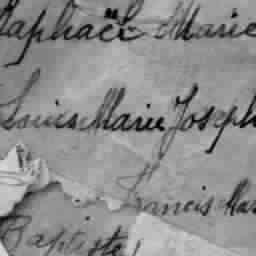 Raphaël Marie
Louis Marie Joseph
Francis Mar
Baptiste